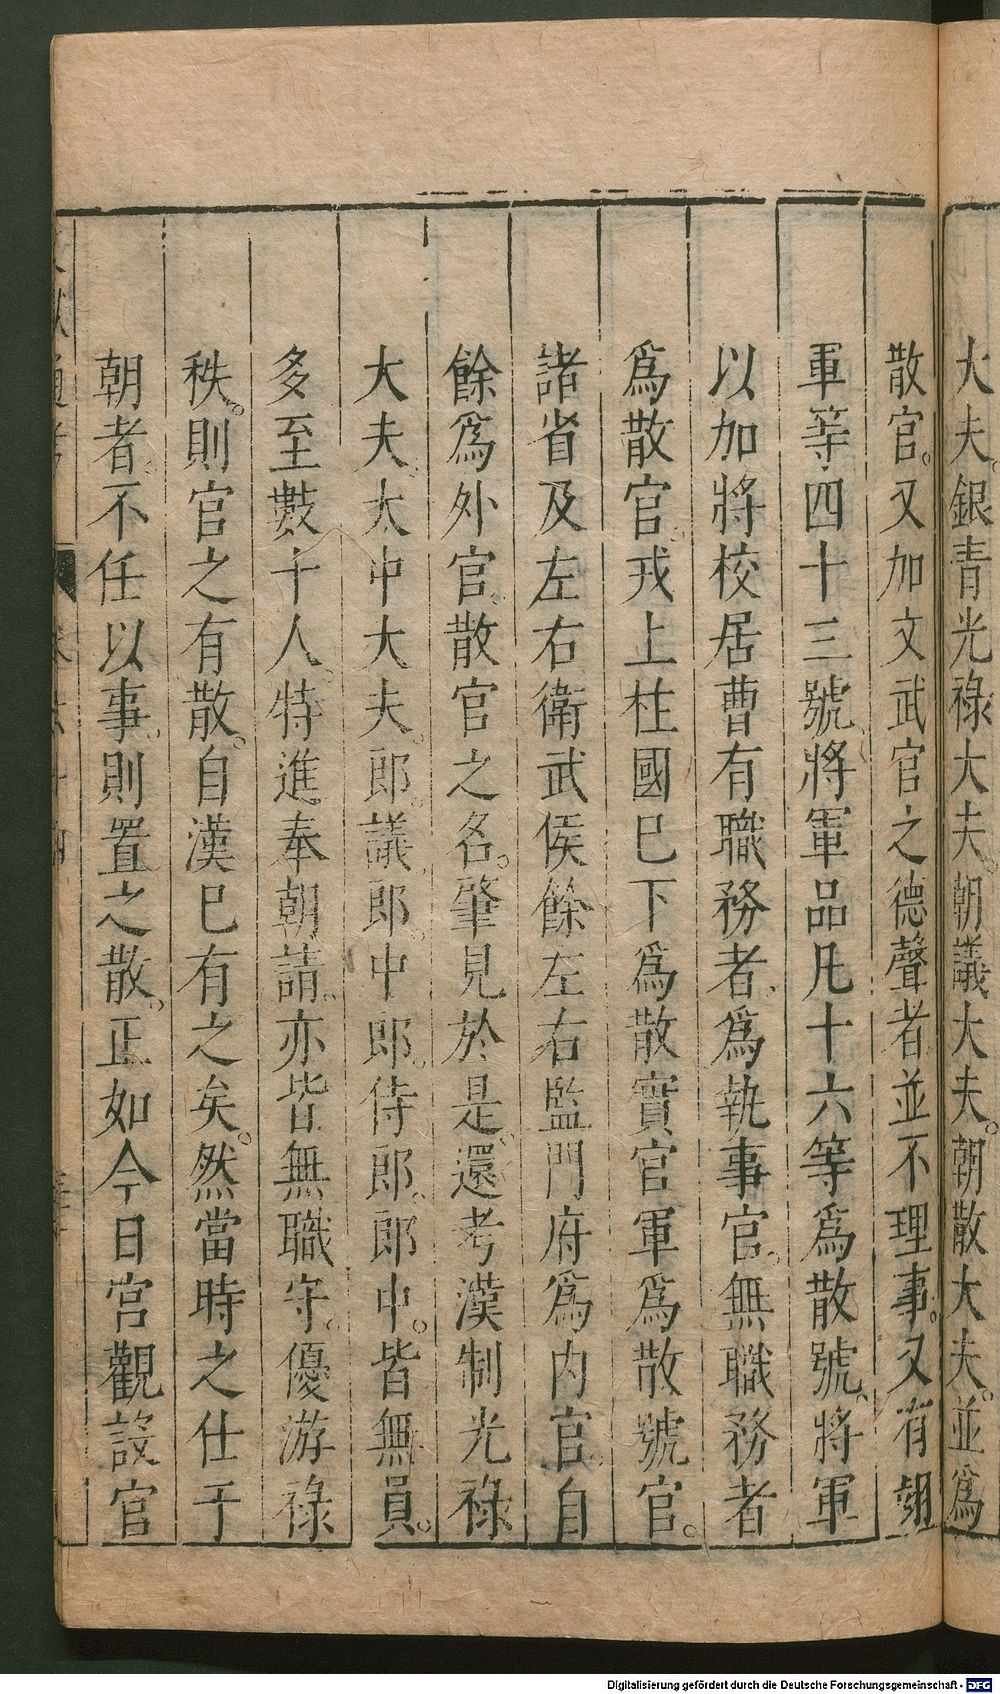 大夫銀青光祿大夫朝議大夫朝散大夫並爲
散官又加文武官之德聲者並不理事又有翊
軍等四十三號將軍品凡十六等爲散號將軍
以加將校居曹有職務者爲執事官無職務者
爲散官戎上柱國巳下爲散實官軍爲散號官
諸省及左右衛武侯餘左右監門府爲内官自
餘爲外官散官之名肇見於是還考漢制光祿
大夫太中大夫郎議郎中郎侍郎郎中皆無員
多至數十人特進奉朝請亦皆無職守優游祿
秩則官之有散自漢巳有之矣然當時之仕于
朝者不任以事則置之散正如今日宫觀設官
Digitalisierung gefördert durch die Deutsche Forschungsgemeinschaft - DFG